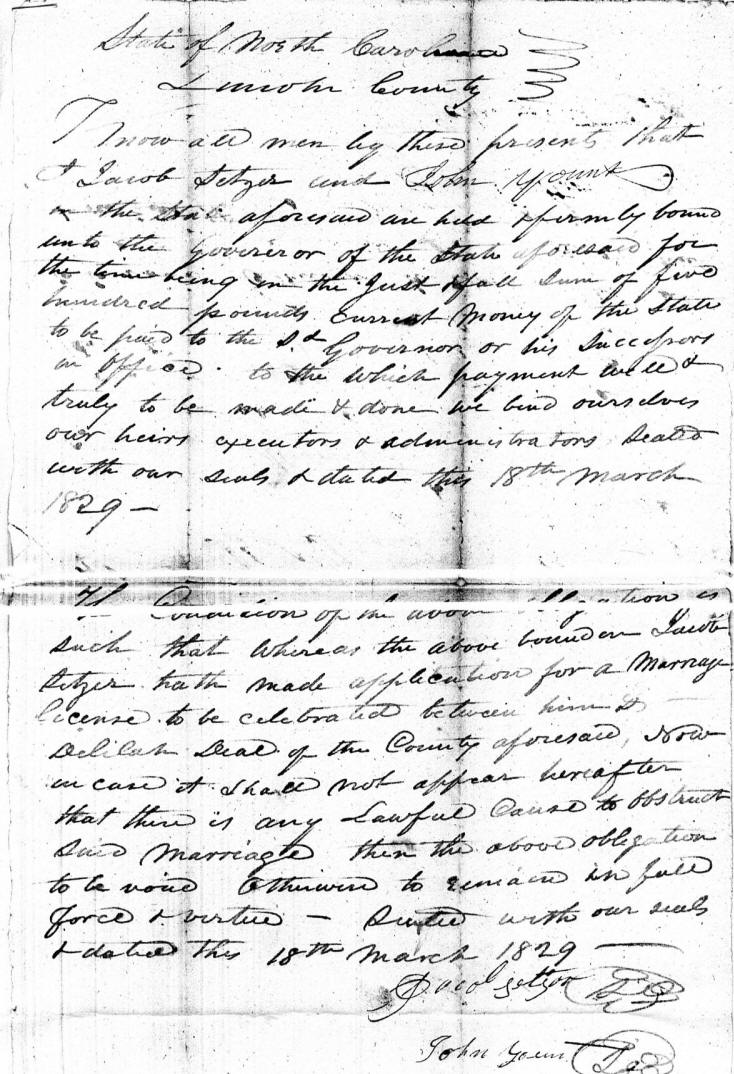 State of North Carolina
Lincoln County
Know all men by these presents that
I Jacob Setzer and John Yount
in the State aforesaid are held & firmly bound
unto the Governor of the State aforesaid for
the time being in the Just & full Sum of five
hundred pounds Current Money of the State
to be paid to the Sd Governor or his Successors
in Office. to the which payment well &
truly to be made & done we bind ourselves
our heirs executors & administrators Sealed
with our seals & dated this 18th March
1829 —
The Condition of the above obligation is
such that whereas the above bounden Jacob
Setzer hath made application for a Marriage
license to be celebrated between him &
Delilah Deal of the County aforesaid, Now
in case it shall not appear hereafter
that there is any Lawful Cause to obstruct
said Marriage then the above obligation
to be void otherwise to remain in full
force & virtue — Sealed with our seals
& dated this 18th March 1829 —
Jacob Setzer
John Yount